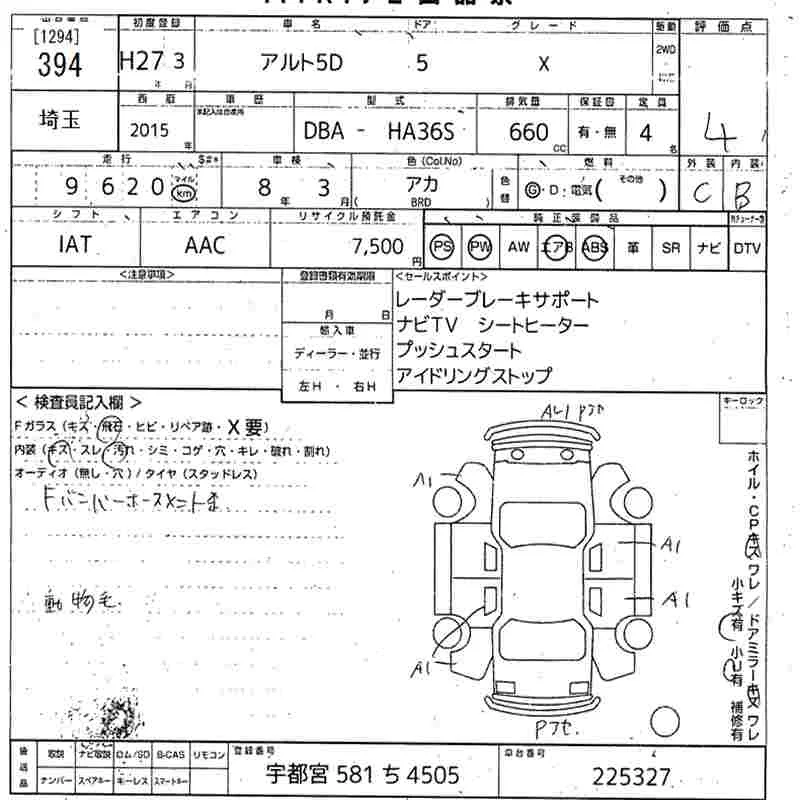 [1294]
394
初度登録
車名
ドア
グレード
駆動
評価点
H27 3
年 月
アルト5D
5
X
2WD
埼玉
西暦
車歴
型式
排気量
保証書
定員
4
未記入は自家用
2015
年
DBA - HA36S
660
CC
有・無
4
名
走行
$#*
車検
色(Col.No)
燃料
外装
内装
9620
マイル
km
8 年 3 月
アカ
( BRD )
色替
G・D・電気( その他 )
C
B
シフト
エアコン
リサイクル預託金
純正装備品
IAT
AAC
7,500
円
PS
PW
AW
エアB
ABS
革
SR
ナビ
DTV
<注意事項>
登録書類有効期限
月 日
輸入車
ディーラー・並行
左H ・ 右H
<セールスポイント>
レーダーブレーキサポート
ナビTV シートヒーター
プッシュスタート
アイドリングストップ
< 検査員記入欄 >
Fガラス(キズ・飛石・ヒビ・リペア跡・X要)
内装(キズ・スレ・汚れ・シミ・コゲ・穴・キレ・破れ・割れ)
オーディオ(無し・穴)/タイヤ(スタッドレス)
Fバンパーホースメント
動物毛
キーロック
A1
A1
A1
A1
ホイル・CPキズ ワレ/ドアミラーキズ ワレ
小キズ有 小U有 補修有
後送品
取説
ナビ取説
ロム/SD
B-CAS
リモコン
ナンバー
スペアキー
キーレス
スマートキー
登録番号
宇都宮 581 ち 4505
車台番号
225327